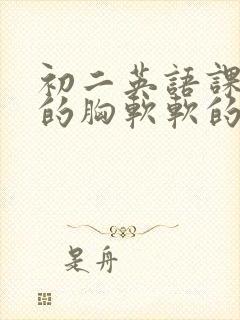 初二英語課
的胸軟軟的
是舟